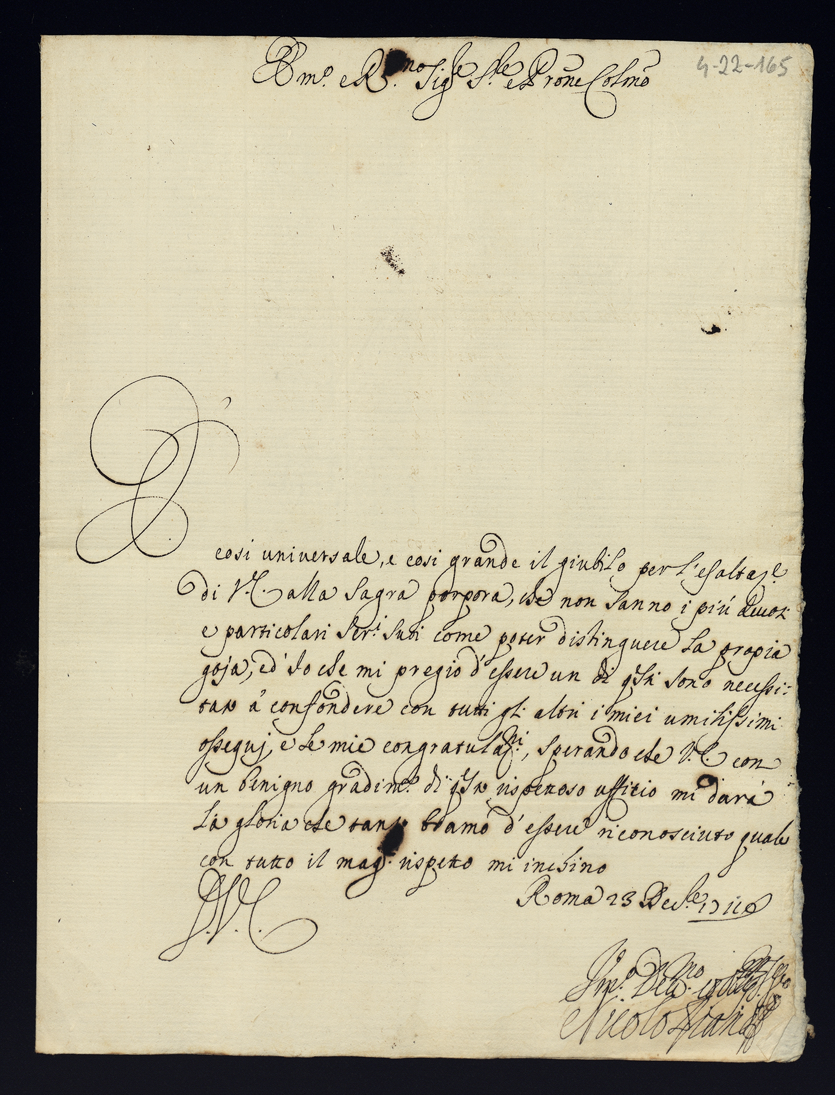 4-22-165
Em.º e R.mo Sig.re S.re e Prone Colmo
È così universale, e così grande il giubilo per l'esaltaz.e
di V.E. alla Sagra porpora, che non sanno i più devoti
e particolari Ser.i suoi come poter distinguere la propia
gioja, ed' Io che mi pregio d'essere un di q.sti sono necessi-
tato à confondere con tutti gl'altri i miei umilissimi
ossequj, e le mie congratulaz.ni, sperando che V.E. con
un benigno gradim.to di q.sto rispettoso uffitio mi darà
la gloria che tanto bramo d'essere riconosciuto quale
con tutto il mag.r rispetto mi inchino
D.V.E.
Roma 23 Decb.re
Um.o Dev.mo
Nicolo